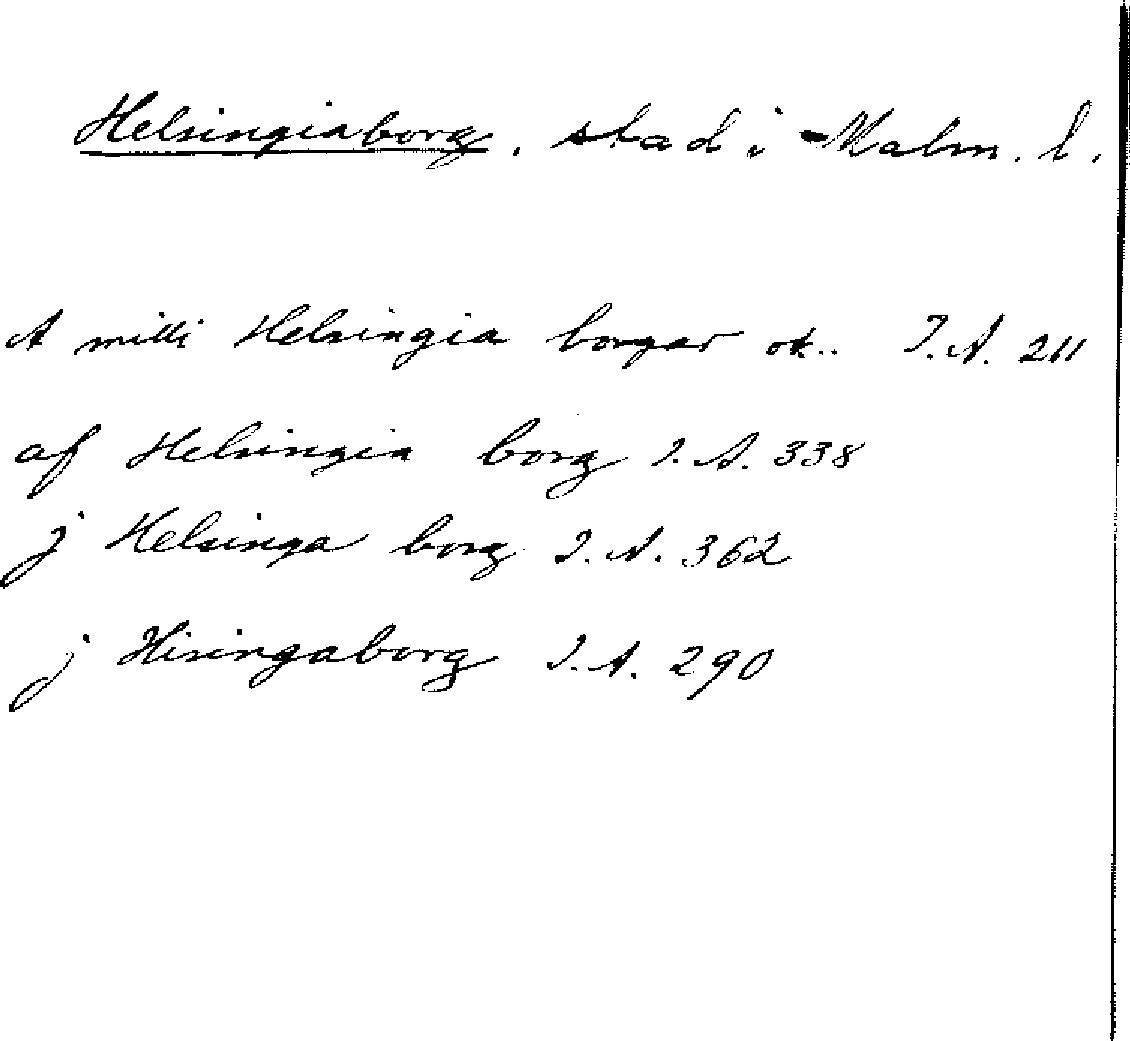 Helsingiaborg, stad i Malm. l.
A milli Helsingia borgar ok.. I.A. 211
af Helsingia borg I.A. 338
j Helsinga borg I.A. 362
j Hisingaborg I.A. 290